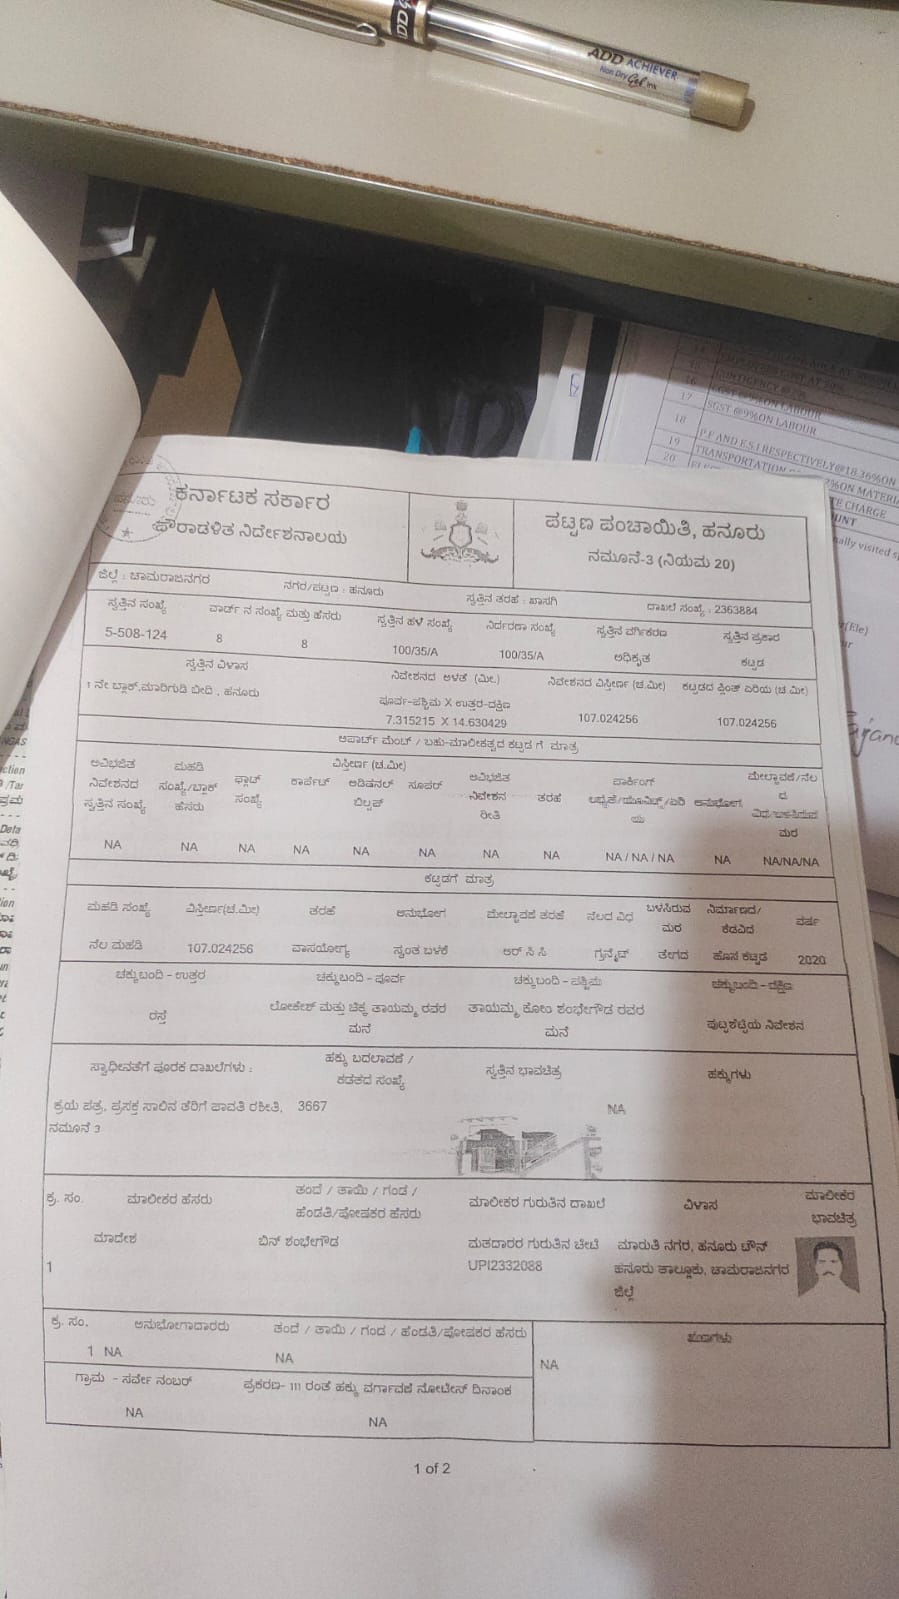 ADD ACHIEVER
Non Dry Gel ink
16 CONTIGENCY @
17 SGST @9%ON LABOUR
18
19 P.F AND E.S.I RESPECTIVELY@18.36%ON
20 TRANSPORTATION
ON MATERI
CHARGE
UNT
nally visited
ಕರ್ನಾಟಕ ಸರ್ಕಾರ
ಪೌರಾಡಳಿತ ನಿರ್ದೇಶನಾಲಯ
ಪಟ್ಟಣ ಪಂಚಾಯಿತಿ, ಹನೂರು
ನಮೂನೆ-3 (ನಿಯಮ 20)
ಜಿಲ್ಲೆ : ಚಾಮರಾಜನಗರ ನಗರ/ಪಟ್ಟಣ : ಹನೂರು ಸ್ವತ್ತಿನ ತರಹೆ : ಖಾಸಗಿ ದಾಖಲೆ ಸಂಖ್ಯೆ : 2363884
ಸ್ವತ್ತಿನ ಸಂಖ್ಯೆ ವಾರ್ಡ್ ನ ಸಂಖ್ಯೆ ಮತ್ತು ಹೆಸರು ಸ್ವತ್ತಿನ ಹಳೆ ಸಂಖ್ಯೆ ನಿರ್ದರಣಾ ಸಂಖ್ಯೆ ಸ್ವತ್ತಿನ ವರ್ಗಿಕರಣ ಸ್ವತ್ತಿನ ಪ್ರಕಾರ
5-508-124 8 8 100/35/A 100/35/A ಅಧಿಕೃತ ಕಟ್ಟಡ
ಸ್ವತ್ತಿನ ವಿಳಾಸ ನಿವೇಶನದ ಅಳತೆ (ಮೀ.) ನಿವೇಶನದ ವಿಸ್ತೀರ್ಣ (ಚ.ಮೀ) ಕಟ್ಟಡದ ಪ್ಲಿಂತ್ ಏರಿಯ (ಚ.ಮೀ)
1 ನೇ ಬ್ಲಾಕ್,ಮಾರಿಗುಡಿ ಬೀದಿ , ಹನೂರು ಪೂರ್ವ-ಪಶ್ಚಿಮ X ಉತ್ತರ-ದಕ್ಷಿಣ
7.315215 X 14.630429 107.024256 107.024256
ಅಪಾರ್ಟ್ ಮೆಂಟ್ / ಬಹು-ಮಾಲೀಕತ್ವದ ಕಟ್ಟಡ ಗೆ ಮಾತ್ರ
ಅವಿಭಜಿತ ಮಹಡಿ ವಿಸ್ತೀರ್ಣ (ಚ.ಮೀ) ಅವಿಭಜಿತ ಪಾರ್ಕಿಂಗ್ ಮೇಲ್ಚಾವಣಿ/ನೆಲ
ನಿವೇಶನದ ಸಂಖ್ಯೆ/ಬ್ಲಾಕ್ ಫ್ಲಾಟ್ ಕಾರ್ಪೆಟ್ ಅಡಿಷನಲ್ ಸೂಪರ್ ನಿವೇಶನ ತರಹೆ ಲಭ್ಯತೆ/ಯೂನಿಟ್ಸ್/ಏರಿ ಅನುಭೋಗ ದ
ಸ್ವತ್ತಿನ ಸಂಖ್ಯೆ ಹೆಸರು ಸಂಖ್ಯೆ ಬಿಲ್ಟಪ್ ರೀತಿ ಯ ವಿಧ/ಬಳಸಿರುವ
ಮರ
NA NA NA NA NA NA NA NA NA / NA / NA NA NA/NA/NA
ಕಟ್ಟಡಗೆ ಮಾತ್ರ
ಮಹಡಿ ಸಂಖ್ಯೆ ವಿಸ್ತೀರ್ಣ(ಚ.ಮೀ) ತರಹೆ ಅನುಭೋಗ ಮೇಲ್ಚಾವಣಿ ತರಹೆ ನೆಲದ ವಿಧ ಬಳಸಿರುವ ಮರ ನಿರ್ಮಾಣದ/ಕೆಡವಿದ ವರ್ಷ
ನೆಲ ಮಹಡಿ 107.024256 ವಾಸಯೋಗ್ಯ ಸ್ವಂತ ಬಳಕೆ ಆರ್ ಸಿ ಸಿ ಗ್ರನೈಟ್ ತೇಗದ ಹೊಸ ಕಟ್ಟಡ 2020
ಚಕ್ಕುಬಂದಿ - ಉತ್ತರ ಚಕ್ಕುಬಂದಿ - ಪೂರ್ವ ಚಕ್ಕುಬಂದಿ - ಪಶ್ಚಿಮ ಚಕ್ಕುಬಂದಿ - ದಕ್ಷಿಣ
ರಸ್ತೆ ಲೋಕೇಶ್ ಮತ್ತು ಚಿಕ್ಕ ತಾಯಮ್ಮ ರವರ ತಾಯಮ್ಮ ಕೋಂ ಶಂಭೇಗೌಡ ರವರ ಪುಟ್ಟಶೆಟ್ಟಿಯ ನಿವೇಶನ
ಮನೆ ಮನೆ
ಸ್ವಾಧೀನತೆಗೆ ಪೂರಕ ದಾಖಲೆಗಳು : ಹಕ್ಕು ಬದಲಾವಣೆ / ಸ್ವತ್ತಿನ ಭಾವಚಿತ್ರ ಹಕ್ಕುಗಳು
ಕಡತದ ಸಂಖ್ಯೆ
ಕ್ರಯ ಪತ್ರ, ಪ್ರಸಕ್ತ ಸಾಲಿನ ತೆರಿಗೆ ಪಾವತಿ ರಶೀತಿ, 3667 NA
ನಮೂನೆ 3
ಕ್ರ. ಸಂ. ಮಾಲೀಕರ ಹೆಸರು ತಂದೆ / ತಾಯಿ / ಗಂಡ / ಮಾಲೀಕರ ಗುರುತಿನ ದಾಖಲೆ ವಿಳಾಸ ಮಾಲೀಕರ
ಹೆಂಡತಿ/ಪೋಷಕರ ಹೆಸರು ಭಾವಚಿತ್ರ
1 ಮಾದೇಶ ಬಿನ್ ಶಂಭೇಗೌಡ ಮತದಾರರ ಗುರುತಿನ ಚೀಟಿ ಮಾರುತಿ ನಗರ, ಹನೂರು ಟೌನ್
UPI2332088 ಹನೂರು ತಾಲ್ಲೂಕು, ಚಾಮರಾಜನಗರ
ಜಿಲ್ಲೆ
ಕ್ರ. ಸಂ. ಅನುಭೋಗಾದಾರರು ತಂದೆ / ತಾಯಿ / ಗಂಡ / ಹೆಂಡತಿ/ಪೋಷಕರ ಹೆಸರು ಋಣಗಳು
1 NA NA NA
ಗ್ರಾಮ - ಸರ್ವೇ ನಂಬರ್ ಪ್ರಕರಣ- 111 ರಂತೆ ಹಕ್ಕು ವರ್ಗಾವಣೆ ನೋಟೀಸ್ ದಿನಾಂಕ
NA NA
1 of 2